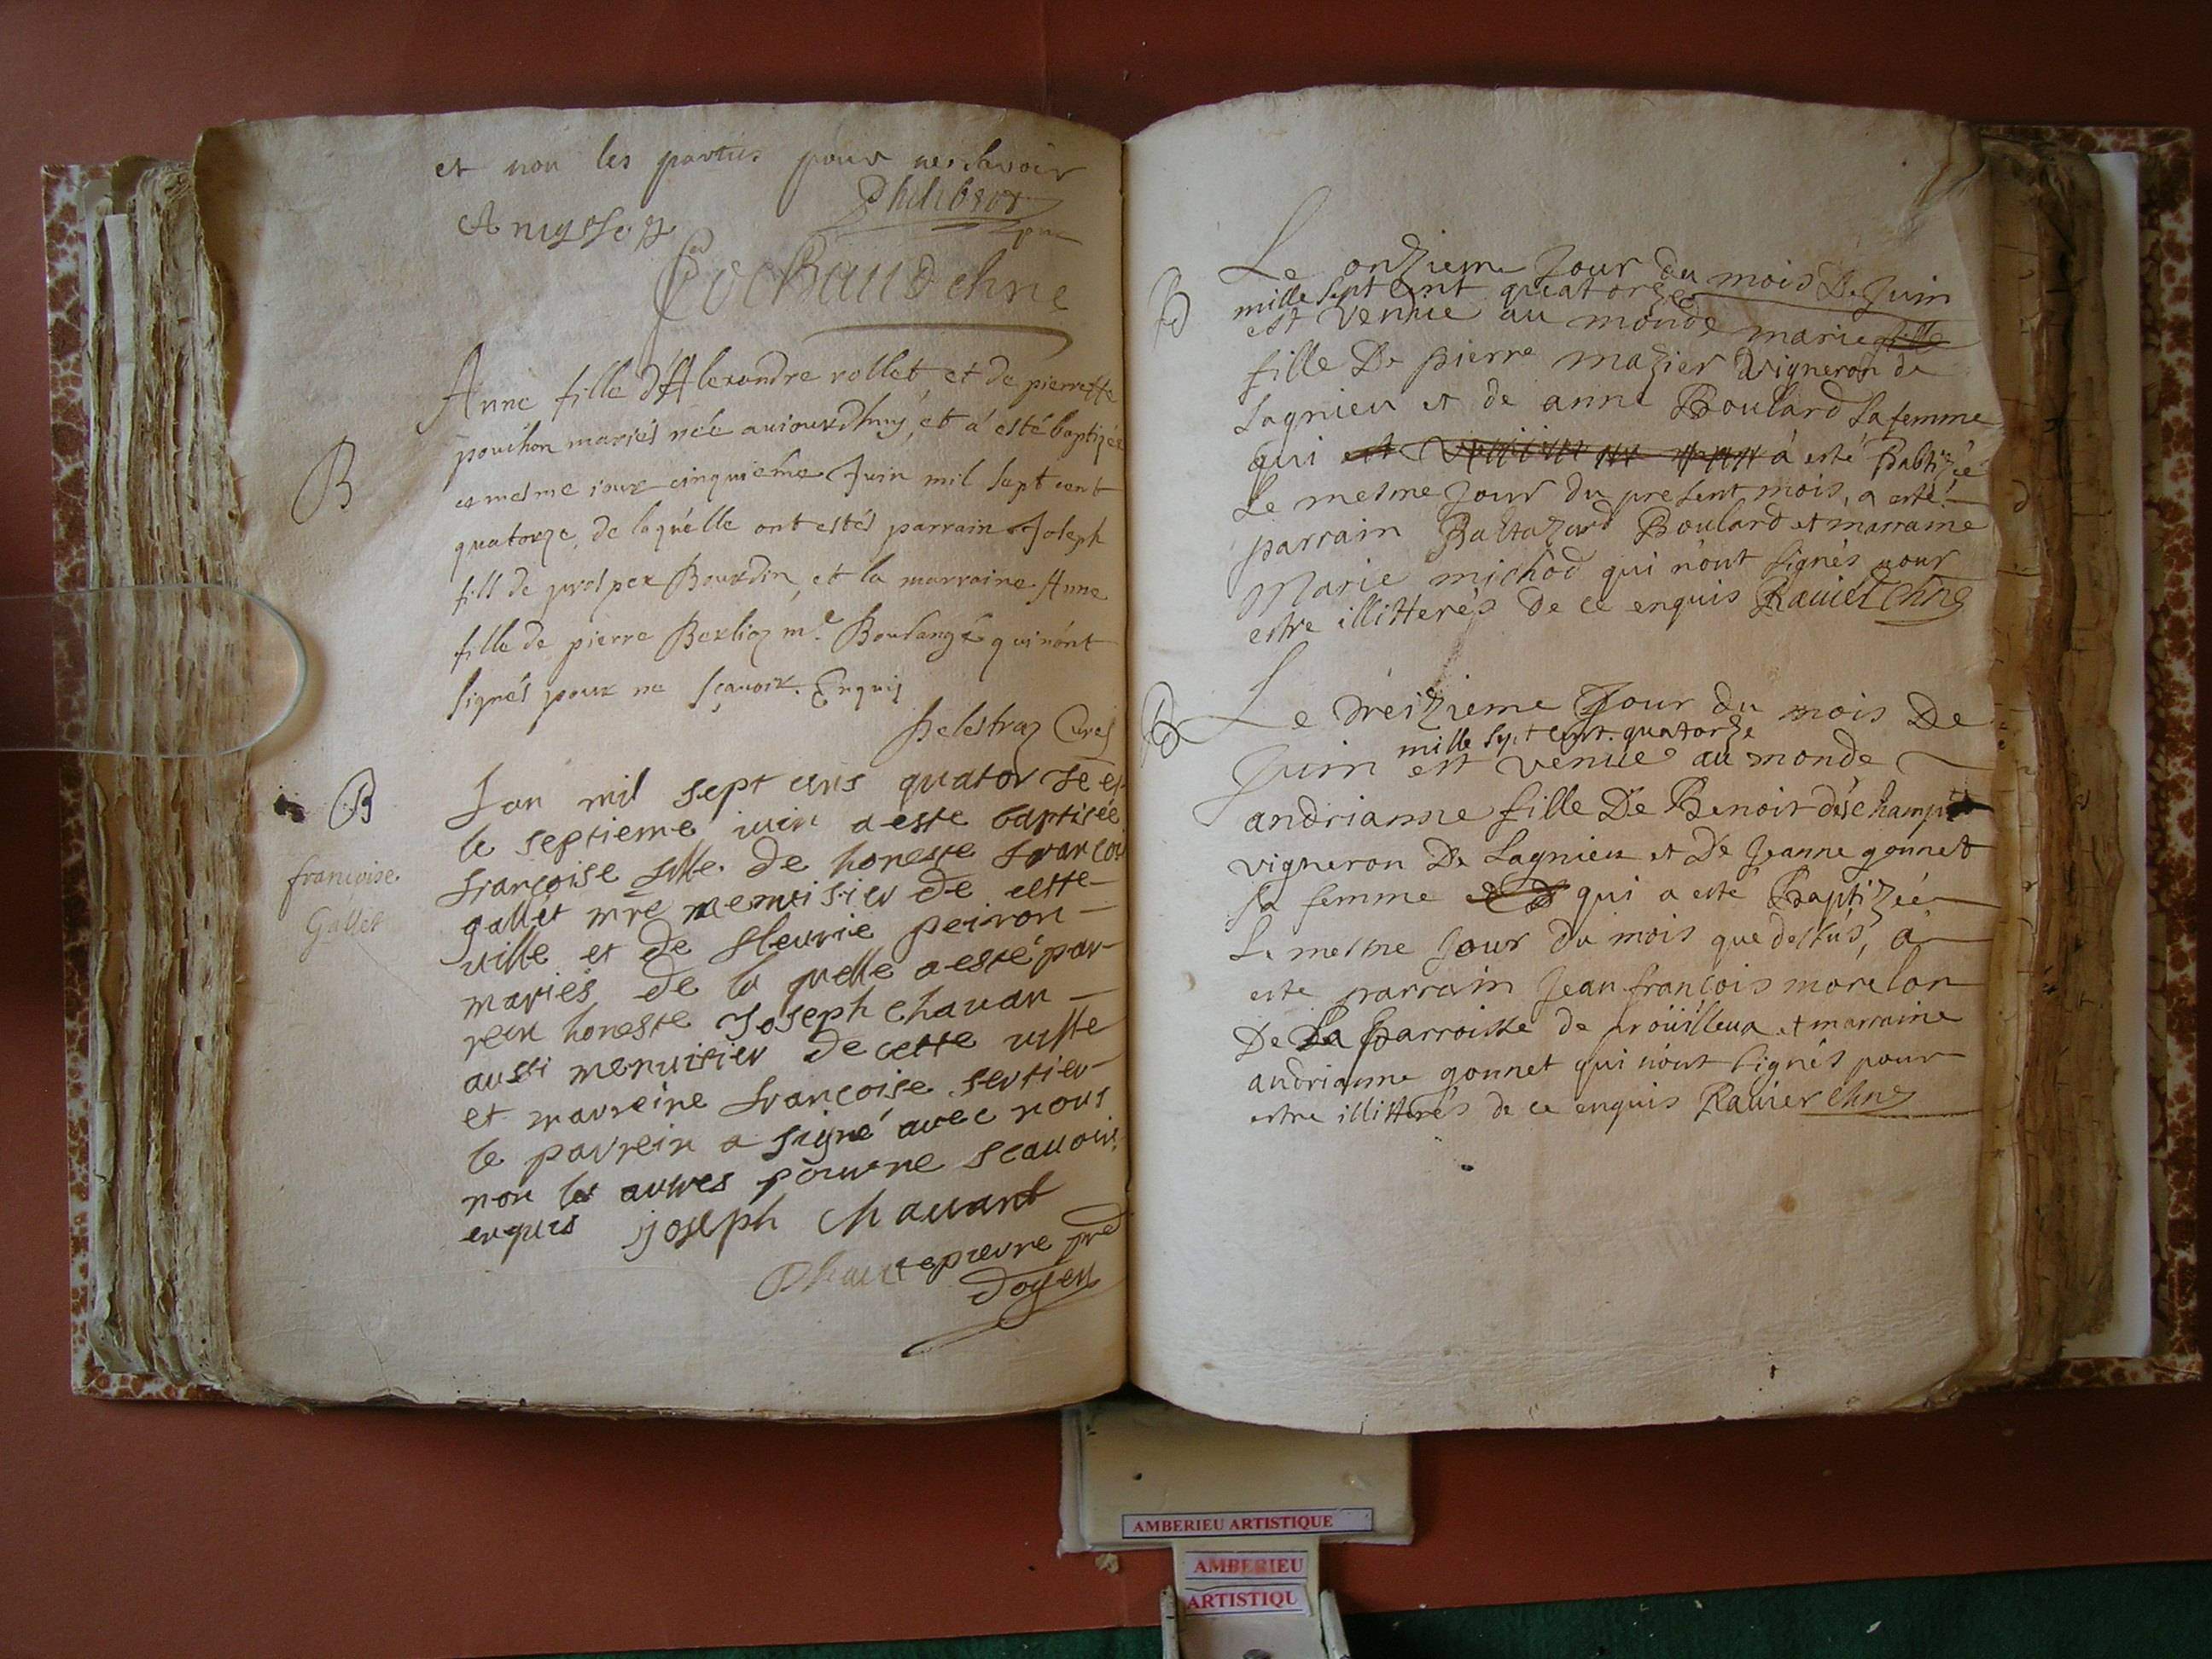 et non les parties pour ne scavoir
Philibert
Cochaud chne
B
Anne fille d'Alexandre rollet, et de pierrette
pouchon mariés née aujourdhuy, et á esté baptizée
ce mesme jour cinquieme Juin mil sept cent
quatorze, de laquelle ont estés parrain Joseph
fils de prosper Bourdin, et la marraine Anne
fille de pierre Berlioz me. Boulangé qui n'ont
signés pour ne sçavoir. Enquis
Delestraz Curé
B
françoise
Gallet
Lan mil sept cens quatorse et
le septieme juin a esté baptisée
françoise fille de honeste françois
gallet mre menuisier de cette
ville et de fleurie peiron
mariés de la quelle a esté par
rein honeste Joseph Chavan
aussi menuisier de cette ville
et marreine françoise sertier
le parrein a signé avec nous
non les autres pour ne scavoir
enquis joseph Chavant
Dhautepierre pre
doyen
B
Le onzieme Jour du mois De Juin
mille sept cent quatorze
est venue au monde marie fille
fille De pierre mazier Vigneron de
Lagnieu et de anne Boulard sa femme
qui à esté Babtizée
Le mesme Jour du present mois, a esté
parrain Baltazard Boulard et marraine
Marie michod qui n'ont signés pour
estre illitterés de ce enquis Ravier Chne
B
Le treizieme Jour du mois De
mille sept cent quatorze
Juin est venue au monde
andrianne fille De Benoit deschamps
vigneron De Lagnieu et De Jeanne gonnet
sa femme qui a esté Baptizée
Le mesme Jour du mois que dessus, a
esté parrain Jean françois morelon
De La parroisse de proüilleux et marraine
andrianne gonnet qui n'ont signés pour
estre illitterés de ce enquis Ravier Chne
AMBERIEU ARTISTIQUE
AMBERIEU
ARTISTIQU